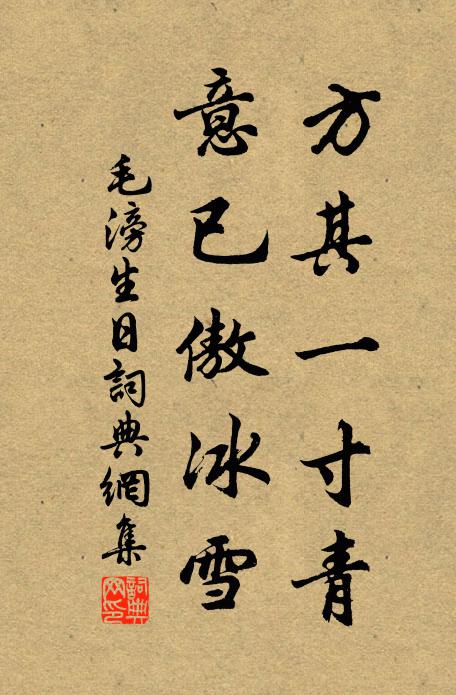 方其一寸青
意已傲冰雪
毛滂生日詞典網集
詞典网印